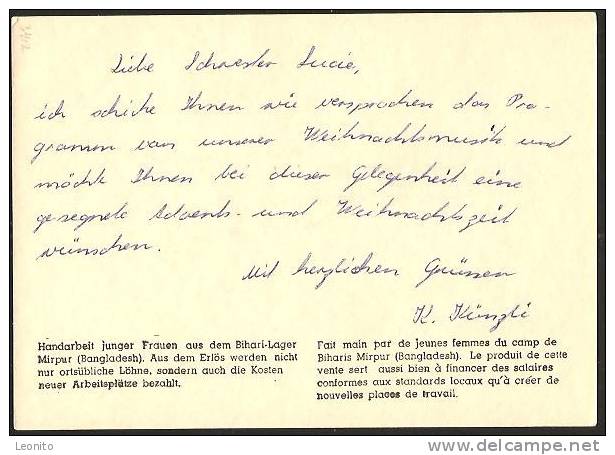 Liebe Schwester Lucie,
ich schicke Ihnen wie versprochen das Pro-
gramm von unserer Weihnachtsmusik und
möchte Ihnen bei dieser Gelegenheit eine
gesegnete Advents- und Weihnachtszeit
wünschen.
Mit herzlichen Grüssen
K. Künzli
Handarbeit junger Frauen aus dem Bihari-Lager
Mirpur (Bangladesh). Aus dem Erlös werden nicht
nur ortsübliche Löhne, sondern auch die Kosten
neuer Arbeitsplätze bezahlt.
Fait main par de jeunes femmes du camp de
Biharis Mirpur (Bangladesh). Le produit de cette
vente sert aussi bien à financer des salaires
conformes aux standards locaux qu'à créer de
nouvelles places de travail.
Leonito
www.delcampe.net